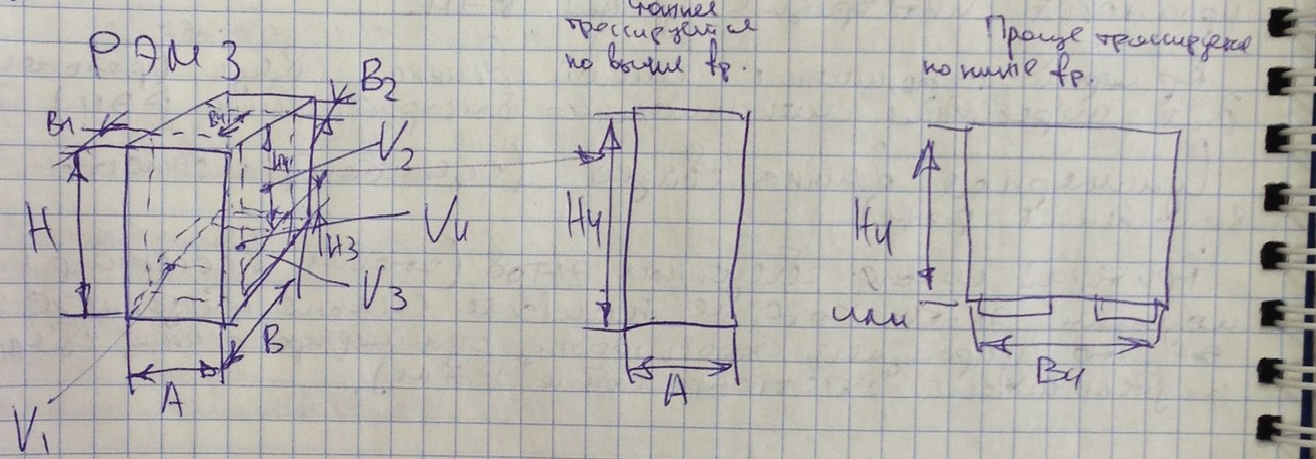 РЭМ 3
трассируется
по выше fр.
Проще трассируется
по ниже fр.
B1
B2
V2
H
H4
V4
H3
V3
B
A
V1
H4
A
H4
или
B4